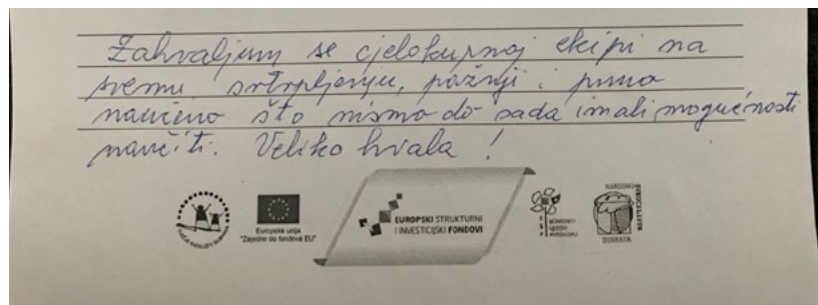 Zahvaljujem se cjelokupnoj ekipi na
svemu, strpljenju, pažnji i puno
naučeno što nismo do sada imali mogućnosti
naučiti. Veliko hvala !
Europska unija
"Zajedno do fondova EU"
EUROPSKI STRUKTURNI
I INVESTICIJSKI FONDOVI
DUBRAVA